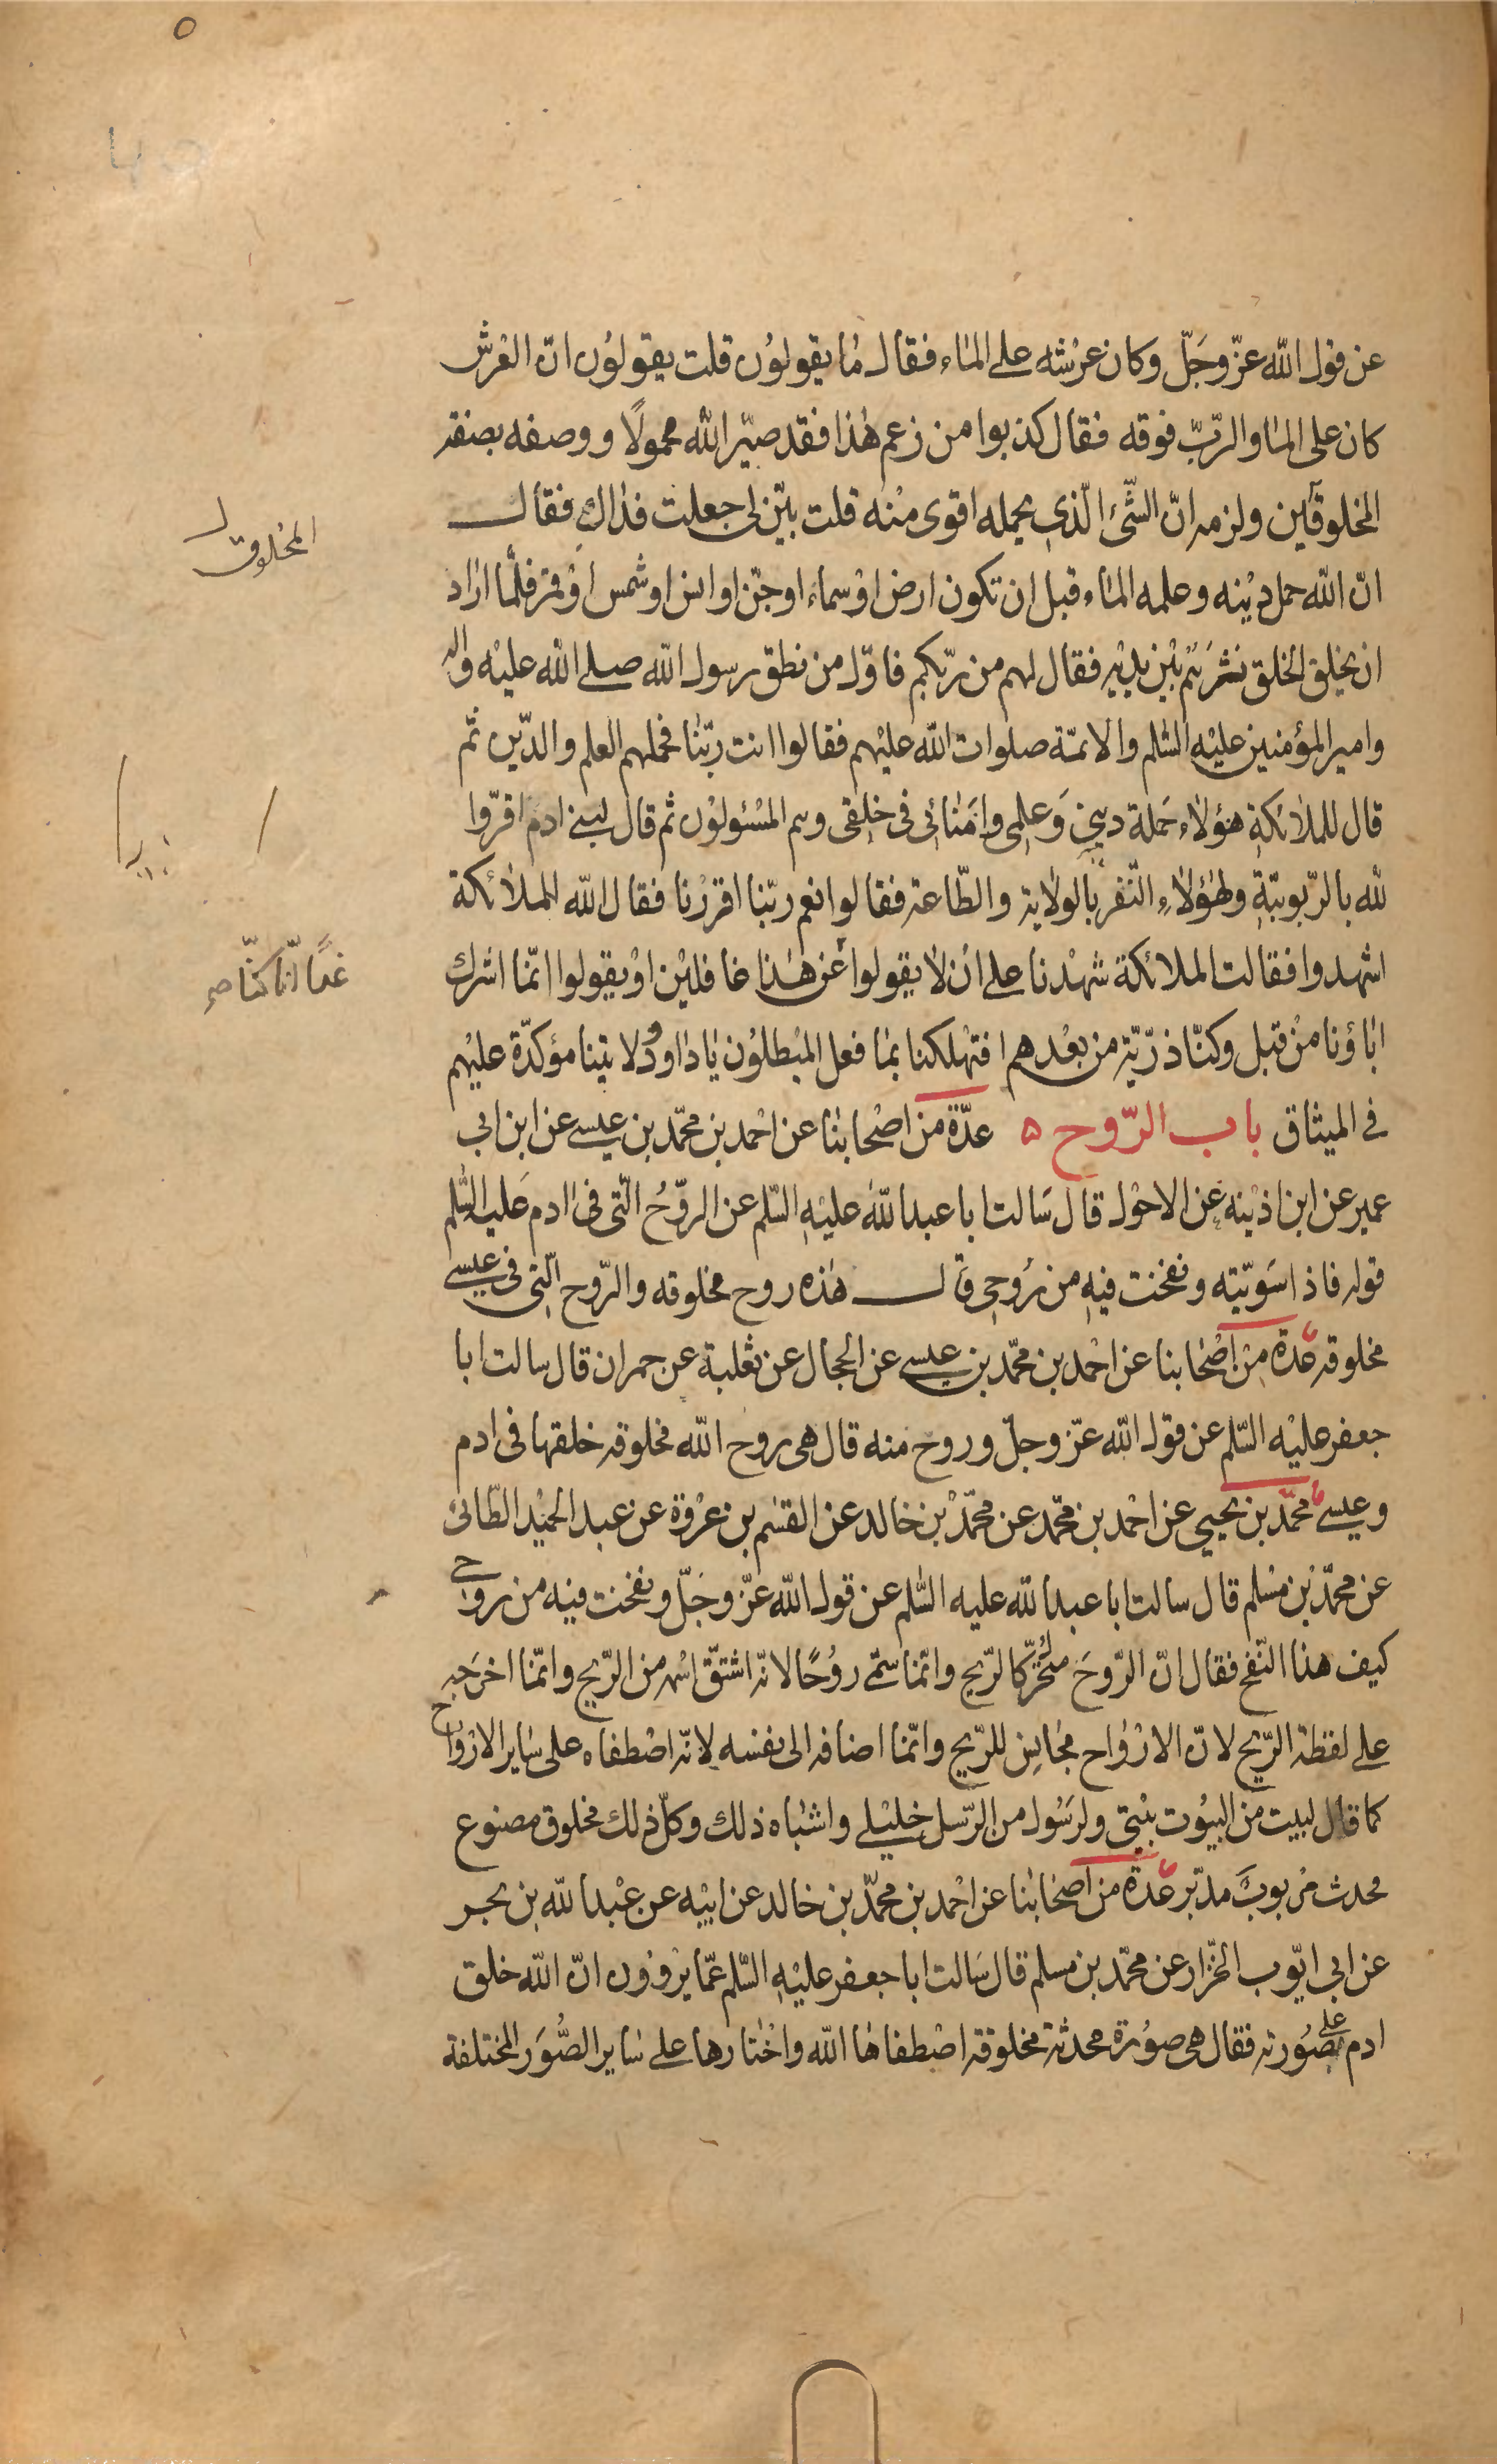 عن قول الله عزّ وجَلّ وكان عرشه على الماء فقال ما يقولون قلت يقولون انّ العرش
كان على الما والربّ فوقه فقال كذبوا من زعم هذا فقد صيّر الله محمولًا ووصفه بصفة
المخلوقين ولزمه انّ الشّئ الّذي يحمله اقوى منه قلت بيّن لي جعلت فداك فقال
المخلوق
انّ الله حمل دينه وعلمه الماء قبل ان تكون ارض او سماء او جنّ او انس او شمس او قمر فلمّا اراد
ان يخلق الخلق نثرهم بين يديه فقال لهم من ربّكم فاوّل من نطق رسول الله صلى الله عليه واله
وامير المؤمنين عليه السّلم والائمّة صلوات الله عليهم فقالوا انت ربّنا فحملهم العلم والدّين ثمّ
قال للملائكة هؤلاء حَملة ديني وَعلمى وامَنائي في خلقى وهم المسئولون ثم قال لبني ادم اقرّوا
لله بالرّبوبيّة ولهؤلاء النّفر بالولاية والطّاعة فقالوا نعم ربّنا اقررنا فقال الله للملائكة
اشهدوا فقالت الملائكة شهدنا على ان لا يقولوا عن هذا غافلين او يقولوا انّما اشرك
غدًا انّا كنّا صح
اباؤنا من قبل وكنّا ذرّيّة من بعدهم افتهلكنا بما فعل المبطلون يا داوود ولايتنا مؤكدّة عليهم
في الميثاق باب الرّوح ه عدّة من اصحابنا عن احمد بن محمّد بن عيسى عن ابن ابي
عمير عن ابن اذينه عن الاحول قال سَالت ابا عبد الله عليه السّلم عن الروّحُ الّتى فى ادم عَليه السّلم
قوله فاذا سَوّيته ونفخت فيه من رُوحى قال هذه روح مخلوقه والرّوح الّتى فى عيسى
مخلوقه عدة من اصحابنا عن احمد بن محمّد بن عيسى عن الحجال عن ثعلبة عن حمران قال سالت ابا
جعفر عليه السّلم عن قول الله عزّ وجلّ وروح منه قال هى روح الله مخلوقه خلقها فى ادم
وعيسى محمّد بن يحيى عن احمد بن محمّد عن محمّد بن خالد عن القسم بن عروة عن عبد الحميد الطّائى
عن محمّد بن مسلم قال سالت ابا عبد الله عليه السّلم عن قول الله عزّ وجَلّ ونفخت فيه من روحى
كيف هذا النّفخ فقال انّ الرّوحَ متحرّك كالرّيح وانّما سمّى روُحًا لانّه اشتقّ اسمه من الرّيح وانّما اخرَجه
على لفظة الرّيح لانّ الارواح مجانِس للرّيح وانّما اضافه الى نفسه لانّه اصطفاه على ساير الارواح
كما قال لبيت من البيُوت بيتى ولرَسُول من الرّسل خليلى واشباه ذلك وكلّ ذلك مخلوق مصنوع
محدث مربوبَ مدبّر عدّة من اصحابنا عن احمد بن محمّد بن خالد عن ابيه عن عبد الله بن بحر
عن ابي ايّوب الخزّار عن محمّد بن مسلم قال سَالت ابا جعفر عليه السّلم عمّا يروون انّ الله خلق
ادم على صُورته فقال هى صورة محدثة مخلوقة اصطفاها الله واختارها على ساير الصُّوَر المختلفة